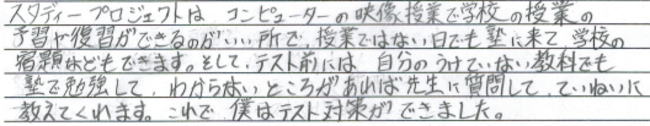 スタディープロジェクトは コンピューターの映像授業で学校の授業の
予習や復習ができるのがいい所で、授業ではない日でも塾に来て、学校の
宿題などもできます。そして、テスト前には、自分のうけていない教科でも
塾で勉強して、わからないところがあれば先生に質問して、ていねいに
教えてくれます。これで、僕はテスト対策ができました。